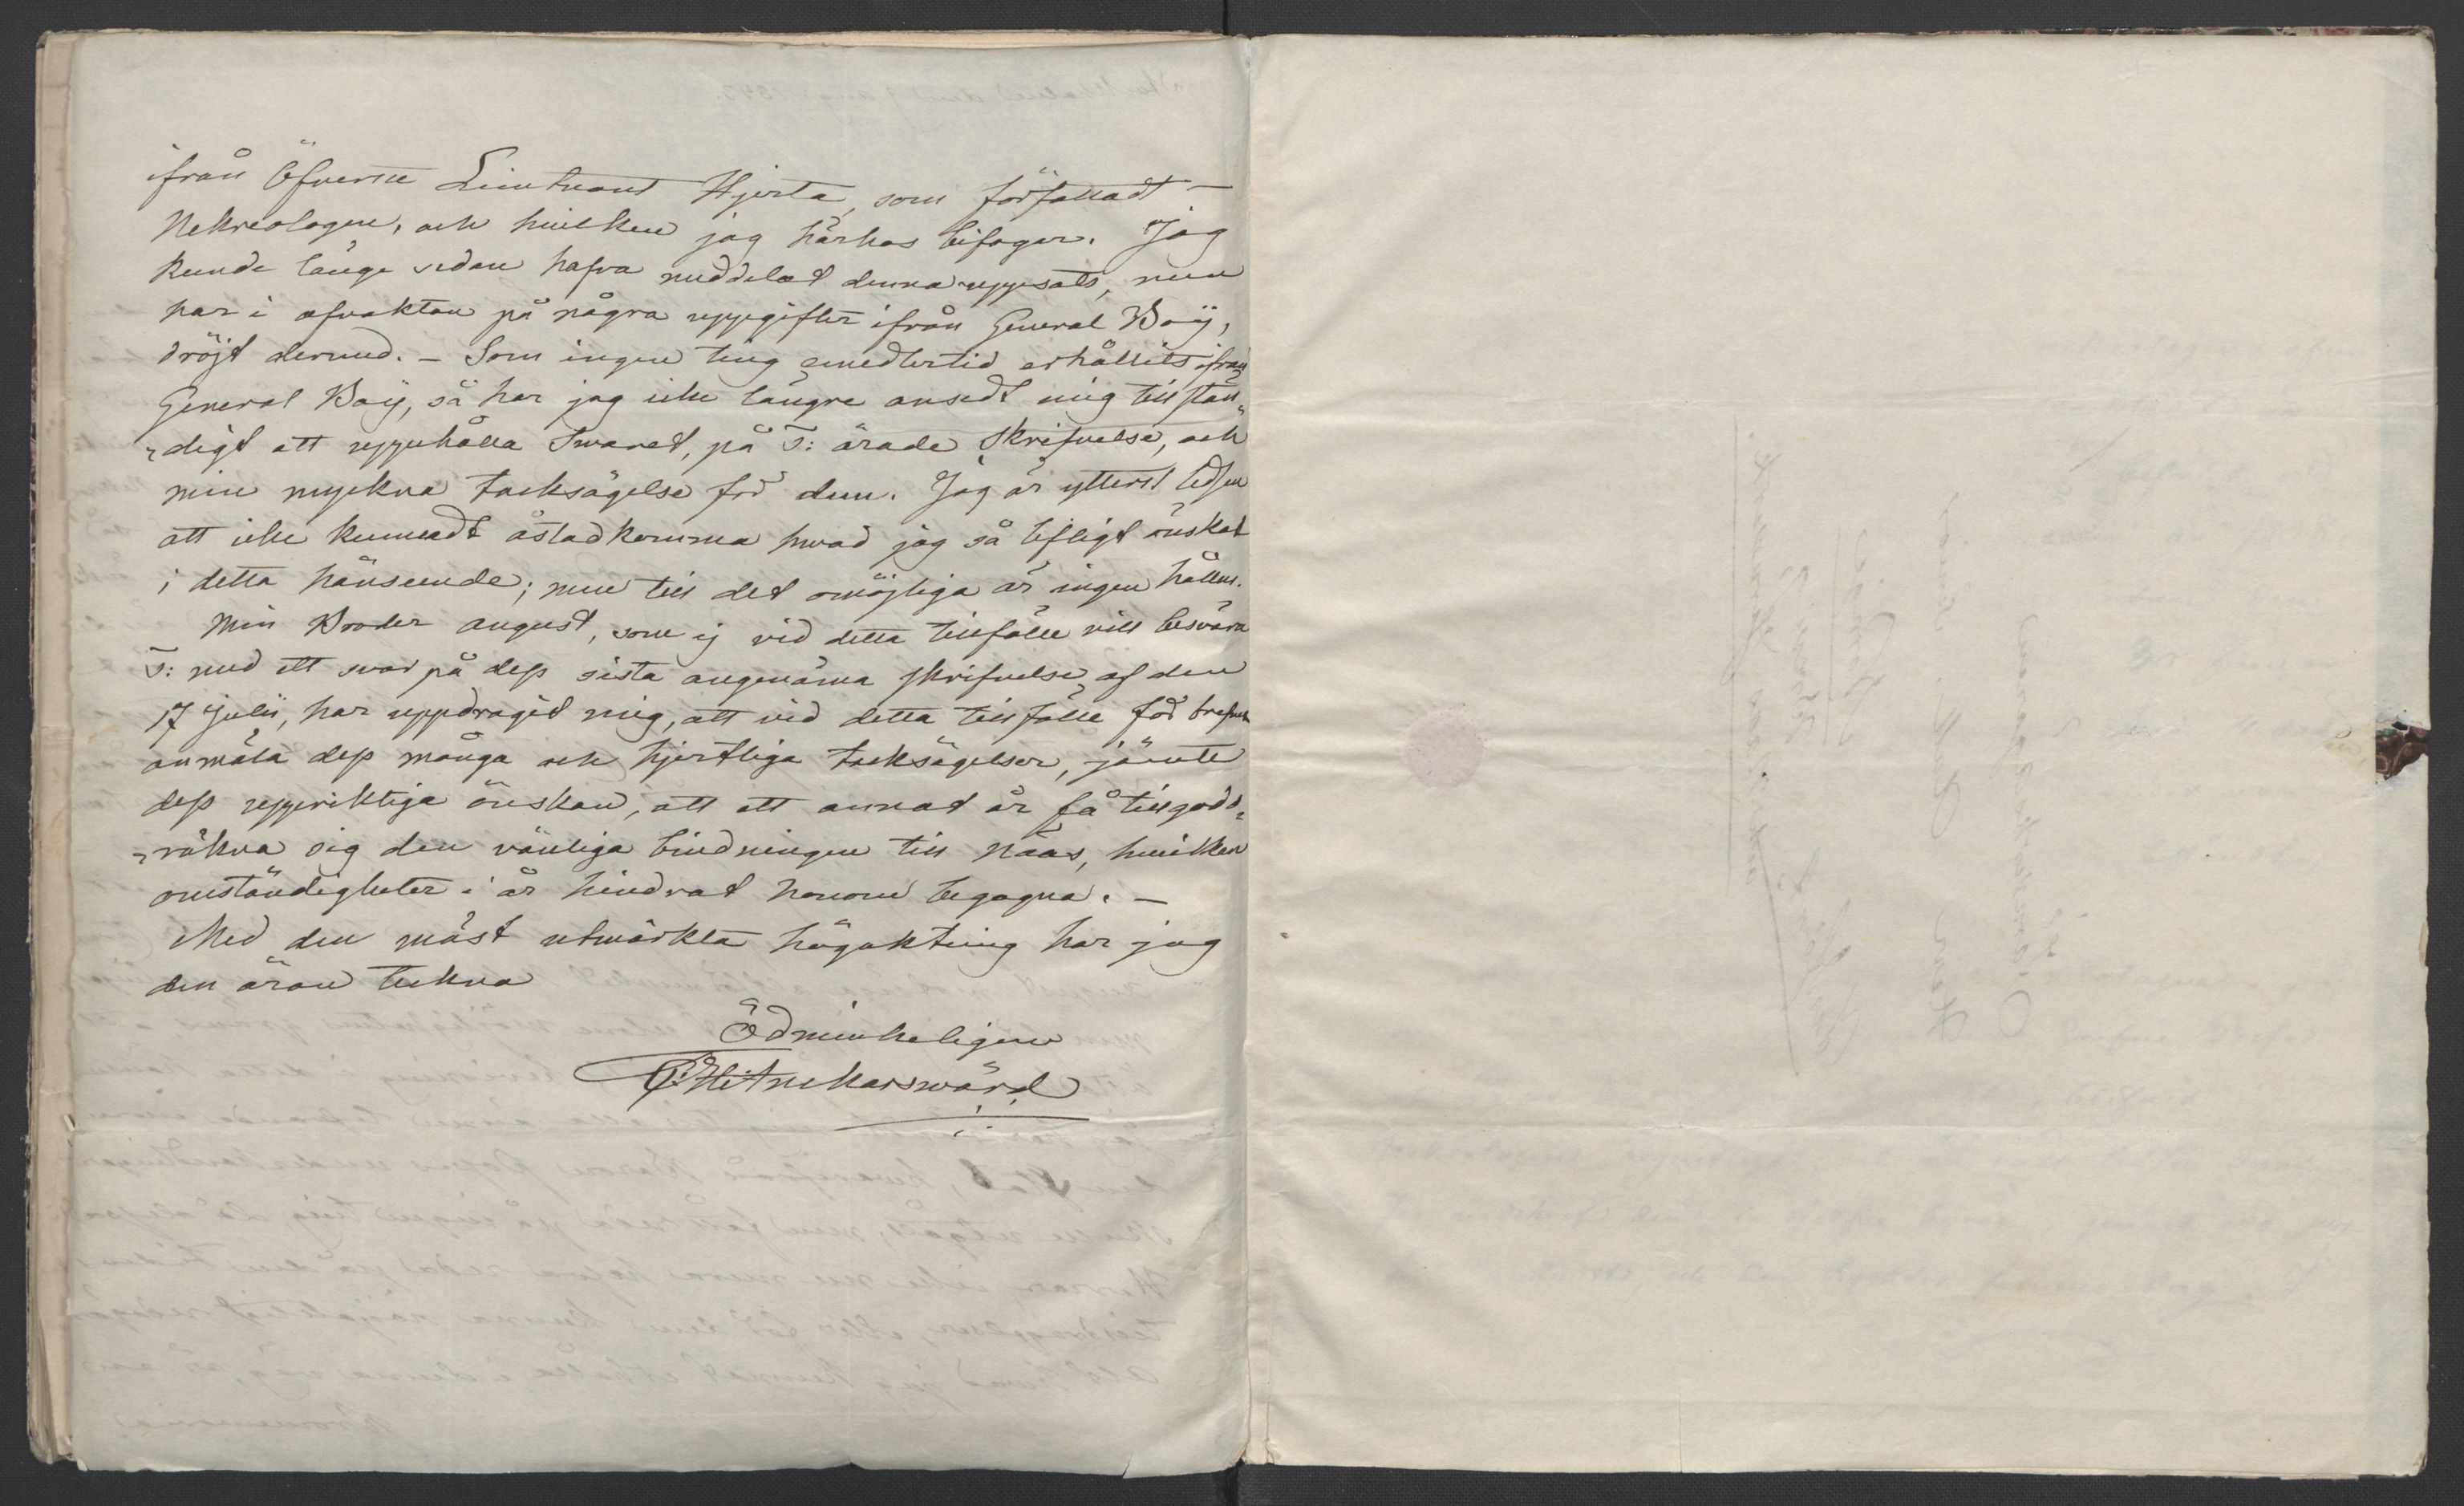 ifrån Öfverste Lieutnant Hjerta, som författadt
Nekreologen, och hvilken jag härhos bifogar. Jag
kunde länge sedan hafva meddelat denna uppsats, men
har i afvaktan på några uppgifter ifrån General Boij,
dröjt dermed. – Som ingen ting emedlertid erhållits ifrån
General Boij, så har jag icke längre ansedt mig tillstän„
„digt att uppehålla Swaret, på T: ärade Skrifvelse, och
min myckna tacksägelse för den. Jag är ytterst ledsen
att icke kunnadt åstadkomma hwad jag så lifligt önskat
i detta hänseende; men till det omöjliga är ingen hållen.
Min Broder August, som ej vid detta tillfälle vill besvära
T: med ett svar på dess sista angenäma skrifvelse af den
17 Julii, har uppdragit mig, att vid detta tillfälle
anmäla dess många och hjertliga tacksägelser, jämte
dess uppriktiga önskan, att ett annat år få tillgodo„
„räkna sig den vänliga bindningen till Nääs, hvilken
omständigheter i år hindrat honom begagna. –
Med den mäst utmärkta högaktning har jag
den äran teckna
Ödmiukeligen
Anckarswärd